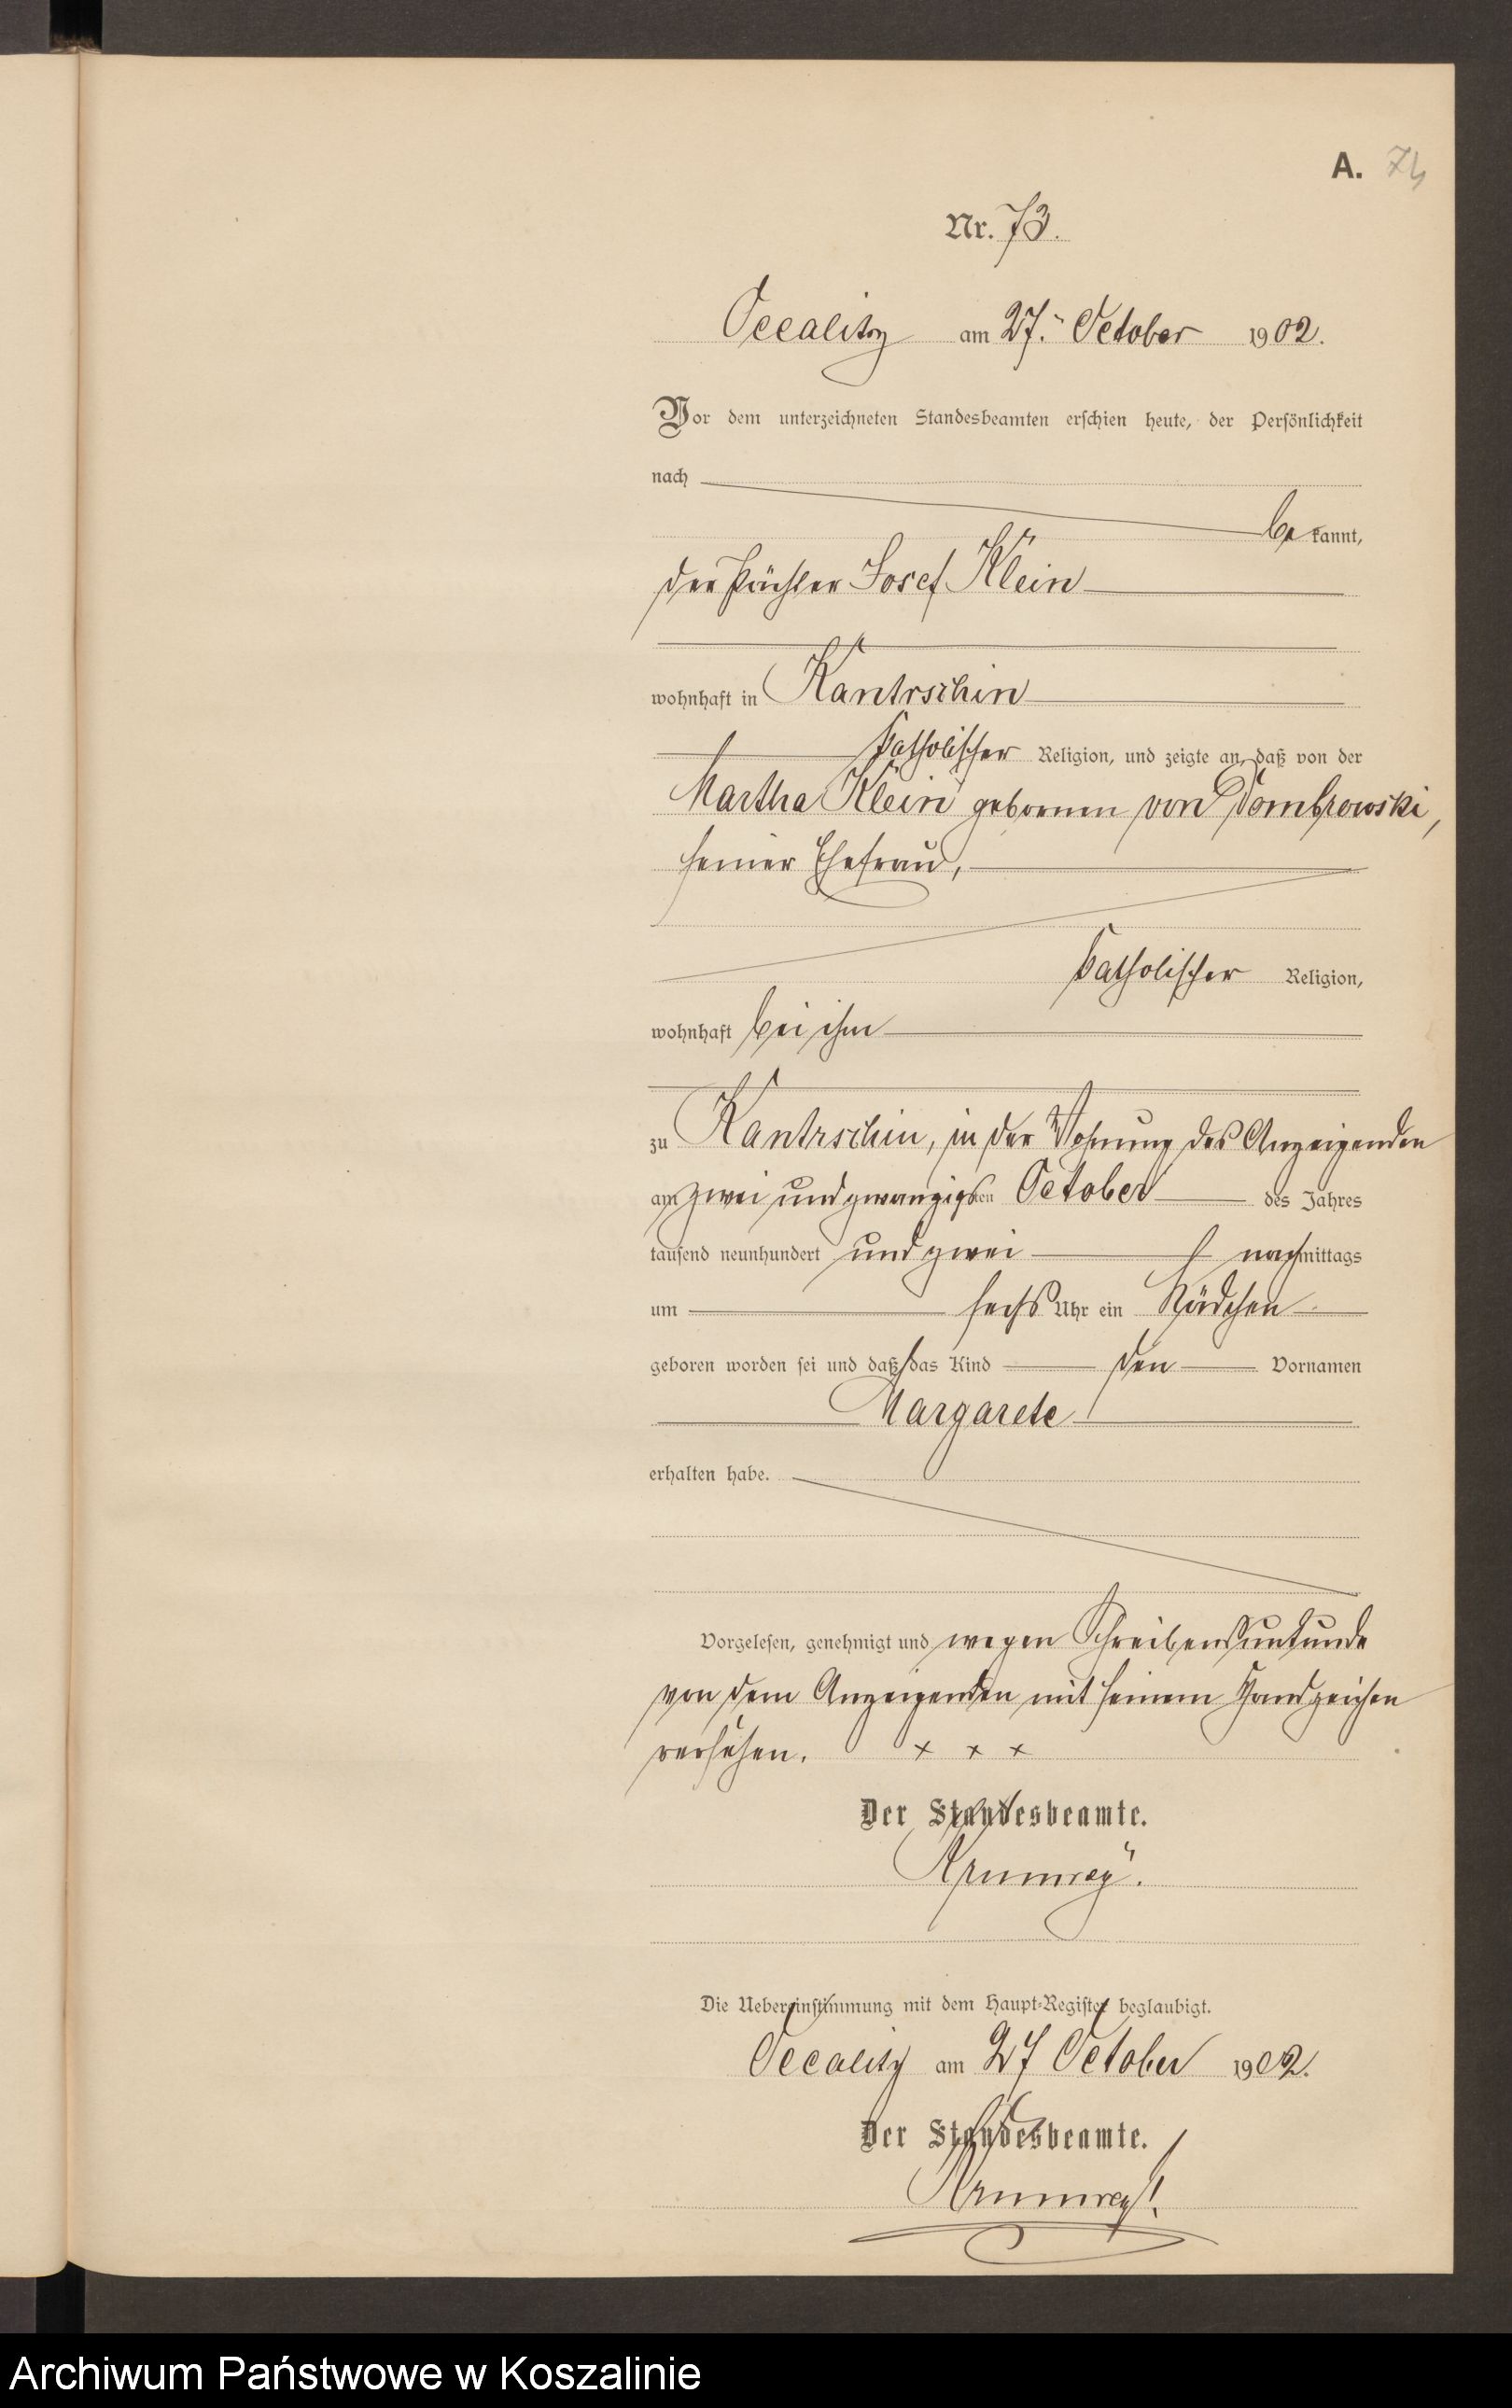 A. 74
Nr. 73.
Occalitz am 27. October 1902.
Vor dem unterzeichneten Standesbeamten erschien heute, der Persönlichkeit
nach
be kannt,
der Pächter Josef Klein
wohnhaft in Kantrschin
katholischer Religion, und zeigte an, daß von der
Martha Klein gebornen von Dombrowski,
seiner Ehefrau,
katholischer Religion,
wohnhaft bei ihm
zu Kantrschin, in der Wohnung des Anzeigenden
am zwei und zwanzigsten October des Jahres
tausend neunhundert und zwei nachmittags
um sechs Uhr ein Mädchen
geboren worden sei und daß das Kind den Vornamen
Margarete
erhalten habe.
Vorgelesen, genehmigt und wegen Schreibensunkunde
von dem Anzeigenden mit seinem Handzeichen
versehen. x x x
Der Standesbeamte.
Krumrey.
Die Uebereinstimmung mit dem Haupt-Register beglaubigt.
Occalitz am 27 October 1902.
Der Standesbeamte.
Krumrey.
Archiwum Państwowe w Koszalinie